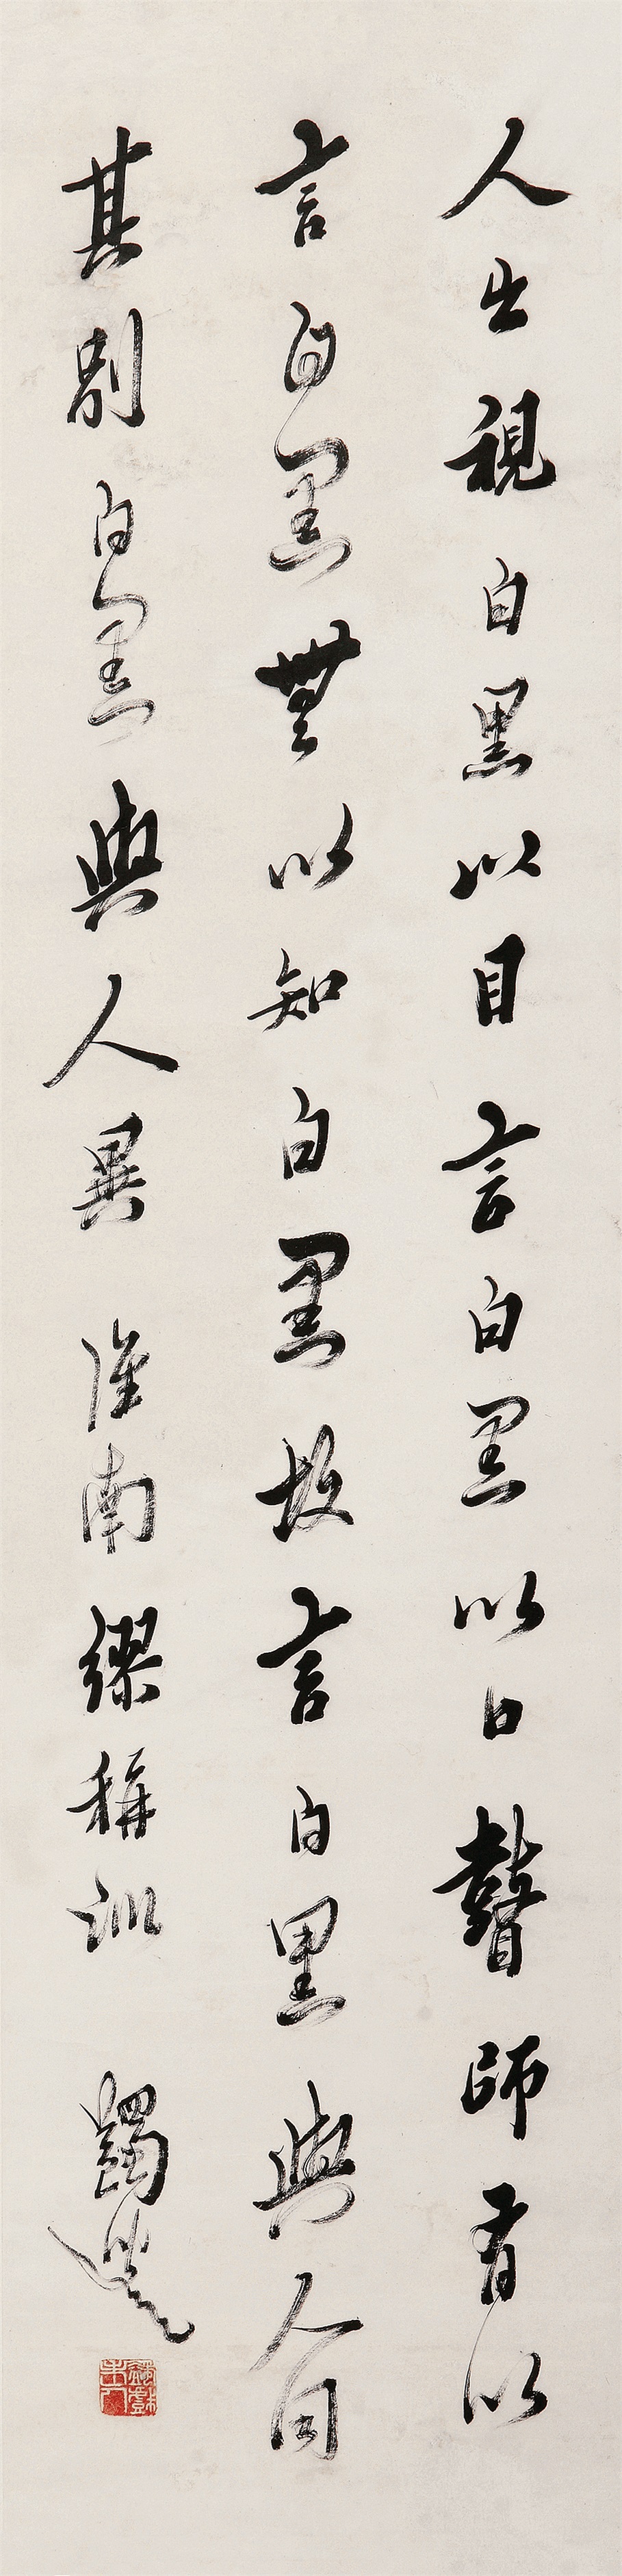 人之視白黑以目言白黑以口瞽師有以
言白黑無以知白黑故言白黑與人同
其別白黑與人異 淮南繆稱訓 蠲叟
蠲戲老人